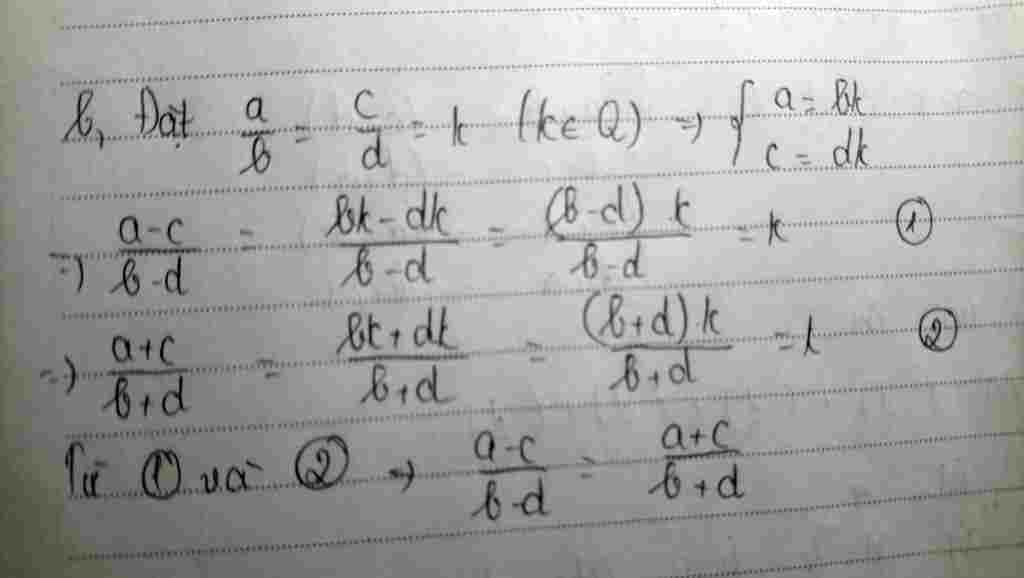 b, Đặt a/b = c/d = k (k ∈ Q) => { a = bk c = dk
=) a-c/b-d = bk-dk/b-d = (b-d)k/b-d = k ①
=) a+c/b+d = bk+dk/b+d = (b+d)k/b+d = k ②
Từ ① và ② => a-c/b-d = a+c/b+d